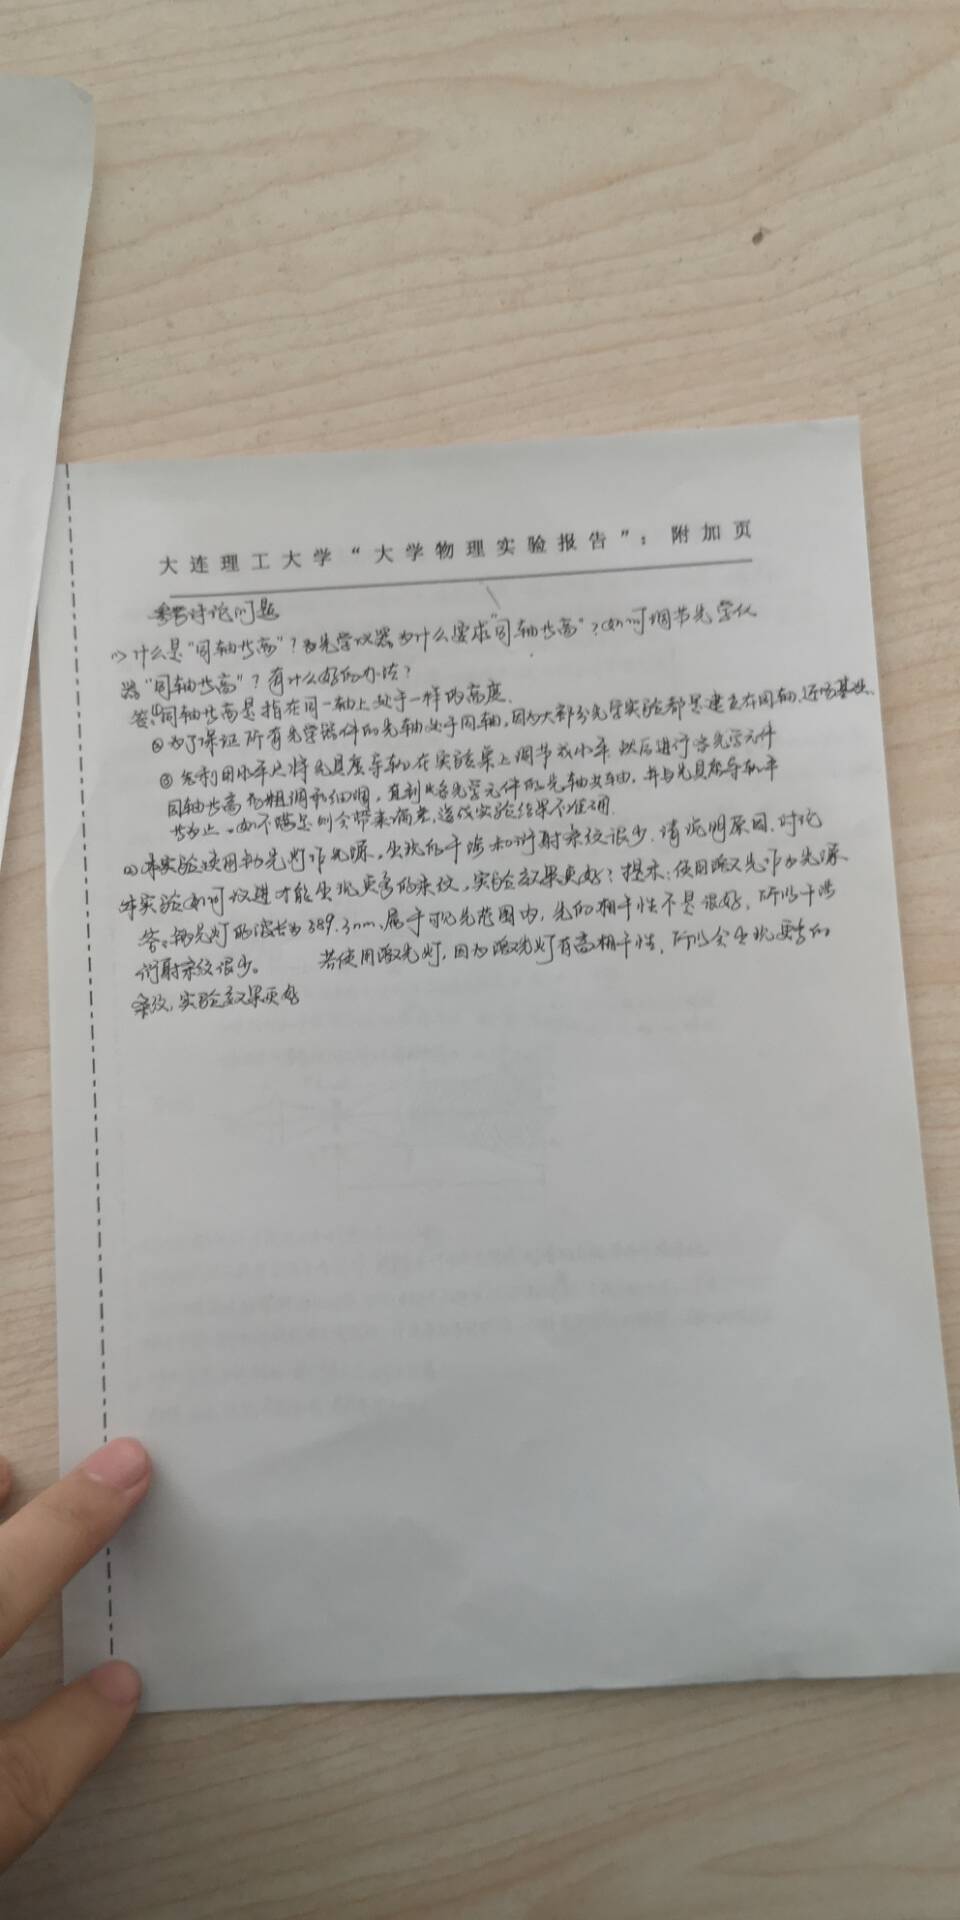 大连理工大学“大学物理实验报告”：附加页
参考讨论问题
(1) 什么是“同轴共高”？光学仪器为什么要求“同轴共高”？如何调节光学仪
器“同轴共高”？有什么好的办法？
答：①同轴共高是指在同一轴上处于一样的高度．
②为了保证所有光学器件的光轴处于同轴，因为大部分光学实验都是建立在同轴、近
③先利用水平尺将光具座导轨在实验桌上调节成水平，然后进行各光学元件
同轴共高的粗调和细调，直到将各光学元件的光轴共轴，并与光具座导轨平
为止。如不满足则会带来偏差，造成实验结果不准确．
(2) 本实验使用钠光灯作光源，出现的干涉和衍射条纹很少．请说明原因．讨论
本实验如何改进才能出现更多的条纹，实验效果更好？提示：使用激光作为光源
答：钠光灯的波长为389.3nm、属于可见光范围内，光的相干性不是很好，所以干涉
衍射条纹很少。 若使用激光灯，因为激光灯有高相干性，所以会出现更多的
条纹，实验效果更好